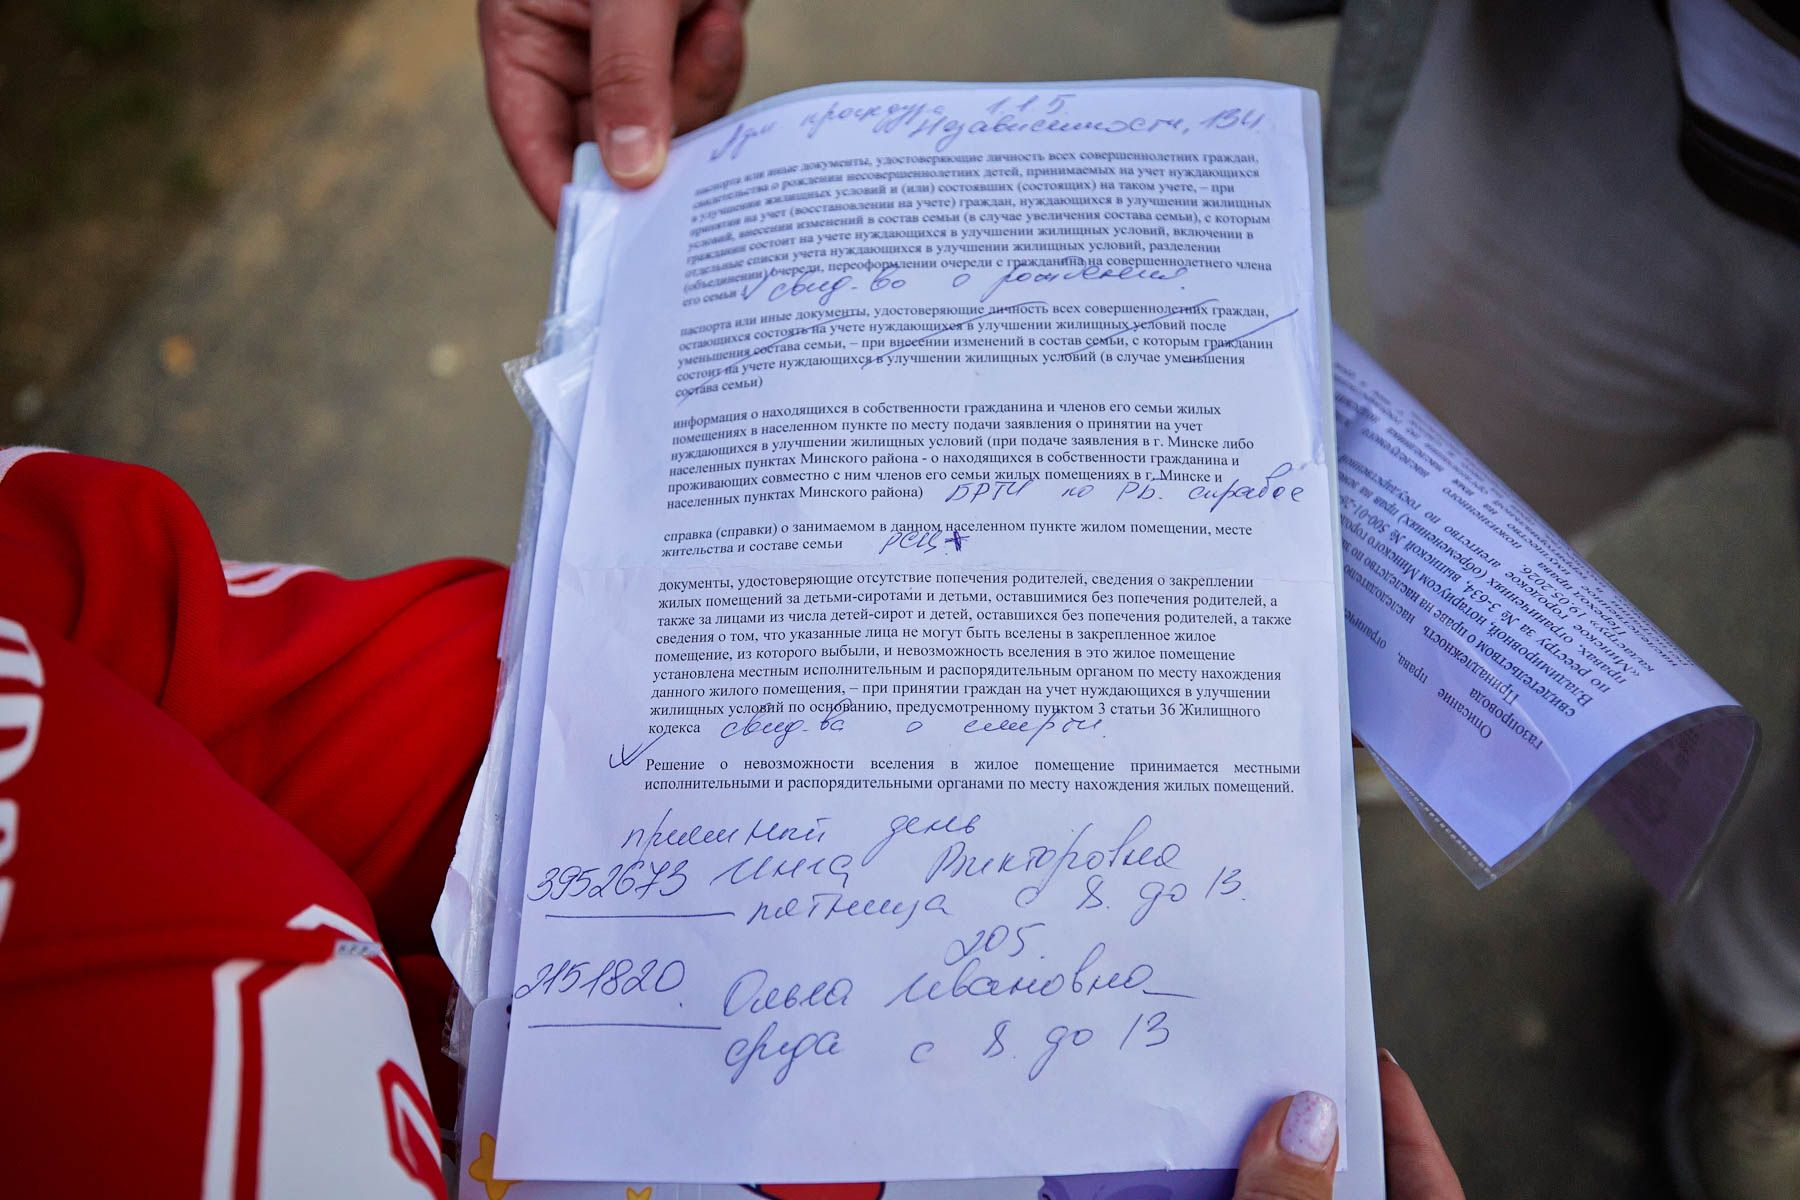 Адм процедура 1.1.5
Независимости, 134
паспорта или иные документы, удостоверяющие личность всех совершеннолетних граждан,
свидетельства о рождении несовершеннолетних детей, принимаемых на учет нуждающихся
в улучшении жилищных условий и (или) состоявших (состоящих) на таком учете, – при
принятии на учет (восстановлении на учете) граждан, нуждающихся в улучшении жилищных
условий, внесении изменений в состав семьи (в случае увеличения состава семьи), с которым
гражданин состоит на учете нуждающихся в улучшении жилищных условий, включении в
отдельные списки учета нуждающихся в улучшении жилищных условий, разделении
(объединении) очереди, переоформлении очереди с гражданина на совершеннолетнего члена
его семьи свид-во о рождения.
паспорта или иные документы, удостоверяющие личность всех совершеннолетних граждан,
остающихся состоять на учете нуждающихся в улучшении жилищных условий после
уменьшения состава семьи, – при внесении изменений в состав семьи, с которым гражданин
состоит на учете нуждающихся в улучшении жилищных условий (в случае уменьшения
состава семьи)
информация о находящихся в собственности гражданина и членов его семьи жилых
помещениях в населенном пункте по месту подачи заявления о принятии на учет
нуждающихся в улучшении жилищных условий (при подаче заявления в г. Минске либо
населенных пунктах Минского района - о находящихся в собственности гражданина и
проживающих совместно с ним членов его семьи жилых помещениях в г. Минске и
населенных пунктах Минского района) БРТИ по РБ.
справка (справки) о занимаемом в данном населенном пункте жилом помещении, месте
жительства и составе семьи РСЦ +
документы, удостоверяющие отсутствие попечения родителей, сведения о закреплении
жилых помещений за детьми-сиротами и детьми, оставшимися без попечения родителей, а
также за лицами из числа детей-сирот и детей, оставшихся без попечения родителей, а также
сведения о том, что указанные лица не могут быть вселены в закрепленное жилое
помещение, из которого выбыли, и невозможность вселения в это жилое помещение
установлена местным исполнительным и распорядительным органом по месту нахождения
данного жилого помещения, – при принятии граждан на учет нуждающихся в улучшении
жилищных условий по основанию, предусмотренному пунктом 3 статьи 36 Жилищного
кодекса свид-ва о смерти.
Решение о невозможности вселения в жилое помещение принимается местными
исполнительными и распорядительными органами по месту нахождения жилых помещений.
приемный день
3952673 Инга Викторовна
пятница с 8. до 13.
205.
2151820. Ольга Ивановна
среда с 8. до 13
Описание права, ограничения
газопровода Принадлежность
свидетельством о праве на наследство по
Владмировной, нотариусом Минского
по реестру за № 3-634, выпиской №
«Минское городское агентство по государственной